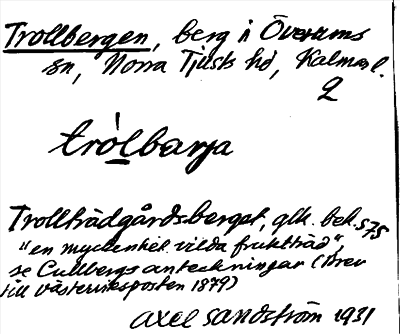 Trollbergen, berg i Överums
sn, Norra Tjusts hd, Kalmar l.
2
trolbarja
Trollträdgårdsberget, glk. bek. S75
"en myckenhet vilda fruktträd",
se Cullbergs anteckningar (brev
till Västerviksposten 1879)
Axel Sandström 1931